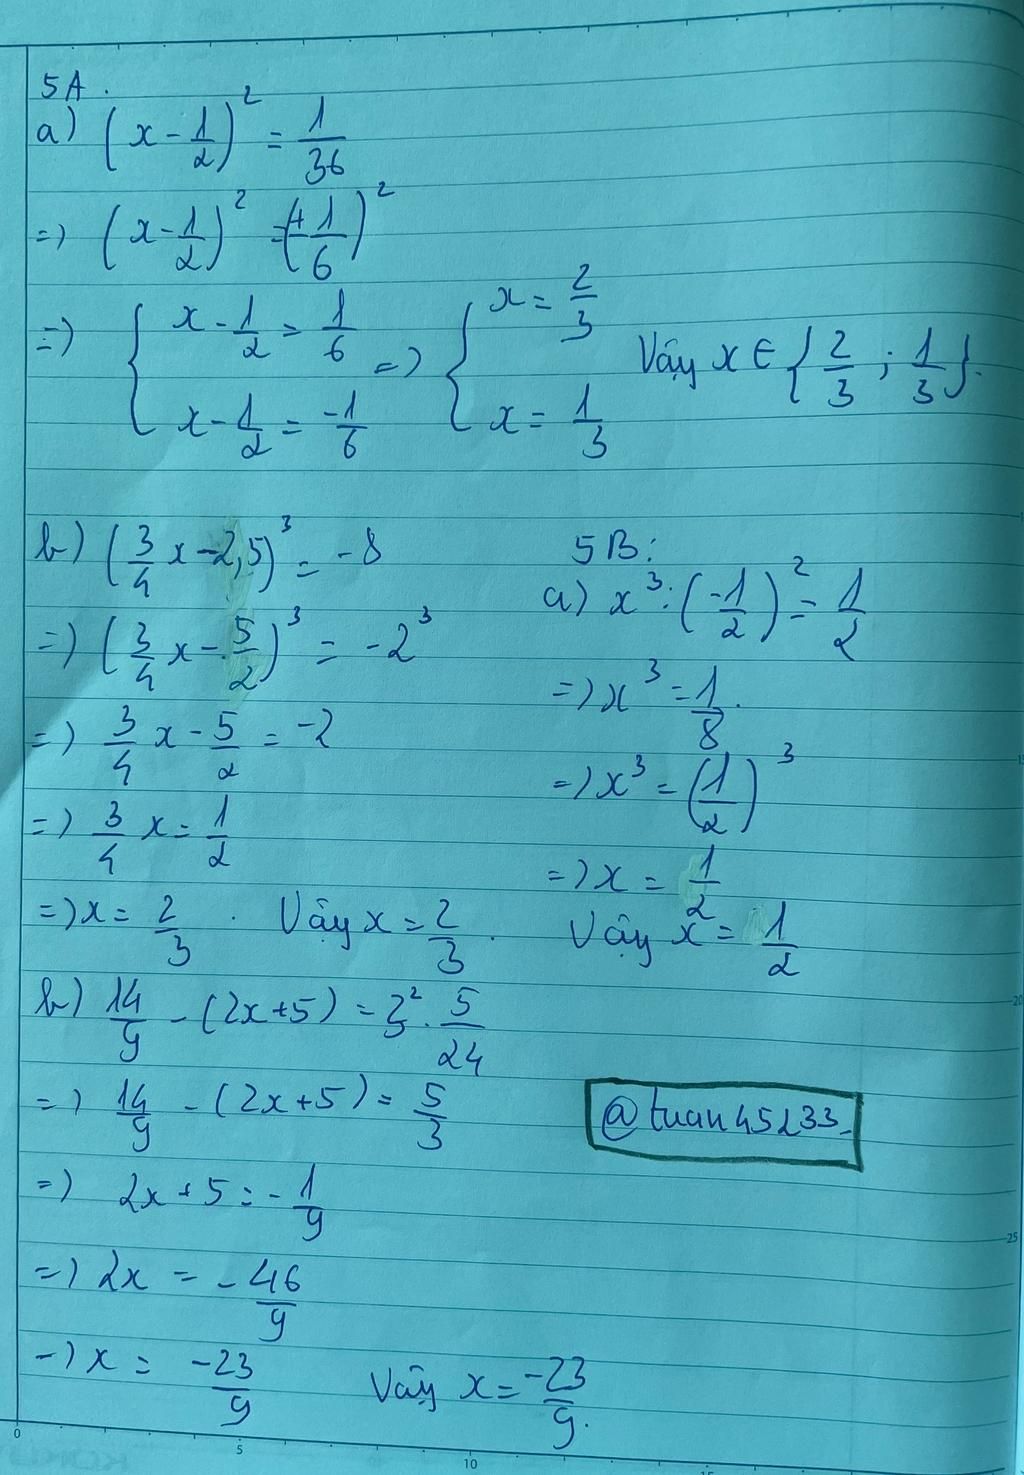 5A.
a) (x - 1/2)² = 1/36
=> (x - 1/2)² = (± 1/6)²
=> { x - 1/2 = 1/6 => { x = 2/3
x - 1/2 = -1/6 x = 1/3 Vậy x ∈ {2/3 ; 1/3}.
b) (3/4 x - 2,5)³ = -8
=> (3/4 x - 5/2)³ = -2³
=> 3/4 x - 5/2 = -2
=> 3/4 x = 1/2
=> x = 2/3 . Vậy x = 2/3.
5B:
a) x³ : (-1/2)² = 1/2
=> x³ = 1/8.
=> x³ = (1/2)³
=> x = 1/2
Vậy x = 1/2
b) 14/9 - (2x+5) = 2² . 5/24
=> 14/9 - (2x+5) = 5/3
=> 2x + 5 = - 1/9
=> 2x = - 46/9
=> x = -23/9 Vậy x = -23/9.
@tuan45233
0 5 10 15
20
25